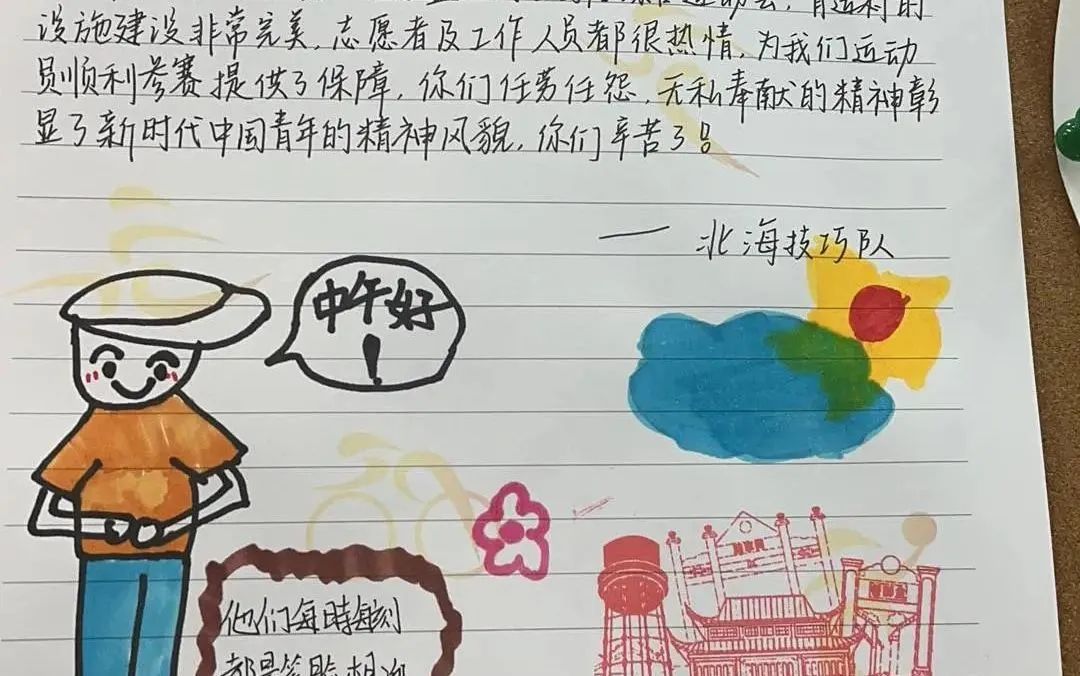 运动会,
设施建设非常完美,志愿者及工作人员都很热情,为我们运动
员顺利参赛提供了保障,你们任劳任怨,无私奉献的精神彰
显了新时代中国青年的精神风貌,你们辛苦了!
—— 北海技巧队
中午好
!
他们每時每刻
都是笑脸相迎